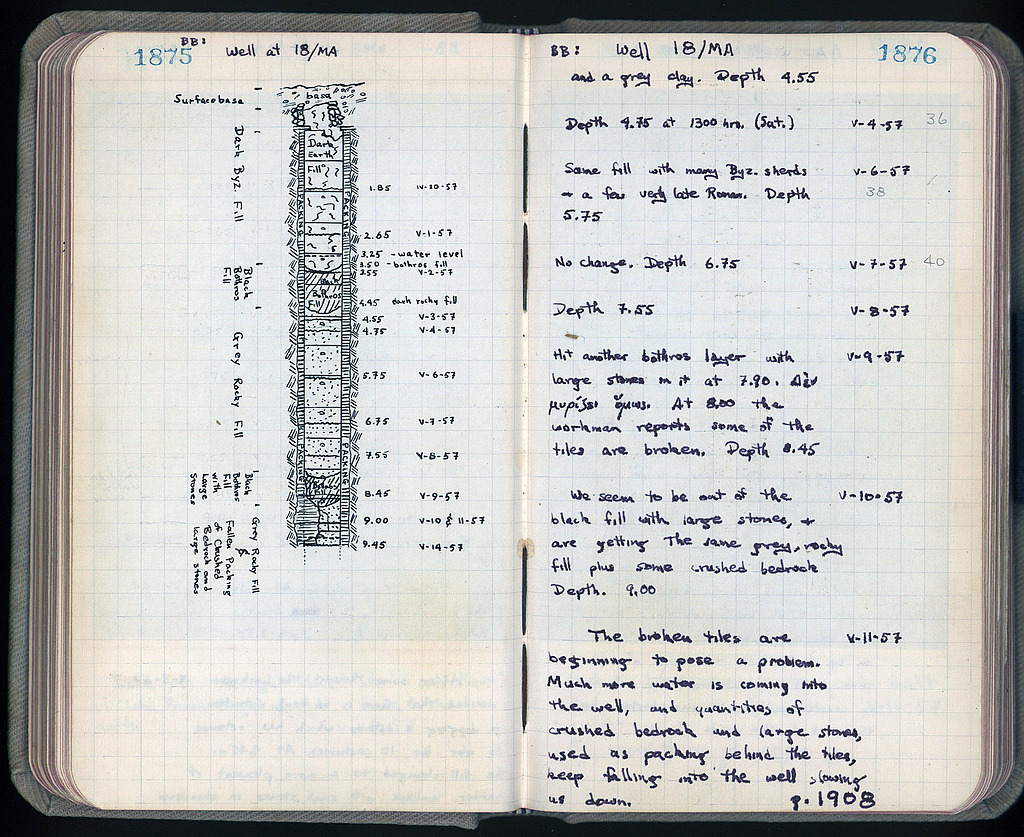 1875 BB: Well at 18/MA
Surface basa
basa
Dark Byz. Fill
Dark
Earth
Fill
PACKING
PACKING
1.85 IV-30-57
2.65 V-1-57
3.25 - water level
3.50 - bothros fill
3.55 V-2-57
Black
Bothros
Fill
Black
Bothros
Fill
4.45 dark rocky fill
4.55 V-3-57
4.75 V-4-57
Grey Rocky Fill
5.75 V-6-57
6.75 V-7-57
PACKING
PACKING
7.55 V-8-57
Black
Bothros
Fill
with
Large
Stones
8.45 V-9-57
9.00 V-10 & 11-57
9.45 V-14-57
Grey Rocky Fill
&
Fallen Packing
of Crushed
Bedrock and
large stones
BB: Well 18/MA 1876
and a grey clay. Depth 4.55
Depth 4.75 at 1300 hrs. (Sat.) V-4-57 36
Same fill with many Byz. sherds V-6-57
+ a few very late Roman. Depth 38
5.75
No change. Depth 6.75 V-7-57 40
Depth 7.55 V-8-57
Hit another bothros layer with V-9-57
large stones in it at 7.90. Δὲν
μυρίζει ὅμως. At 8.00 the
workman reports some of the
tiles are broken. Depth 8.45
We seem to be out of the V-10-57
black fill with large stones, +
are getting the same grey, rocky
fill plus some crushed bedrock
Depth. 9.00
The broken tiles are V-11-57
beginning to pose a problem.
Much more water is coming into
the well, and quantities of
crushed bedrock and large stones,
used as packing behind the tiles,
keep falling into the well slowing
us down. p. 1908